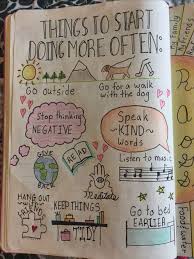 THINGS TO START
DOING MORE OFTEN:
Go outside
Go for a walk
with the dog
Stop thinking
NEGATIVE
Speak
~KIND~
Words
GIVE
BACK
READ
Listen to music
Meditate
HANG OUT
KEEP THINGS
TIDY
Go to bed
EARLIER